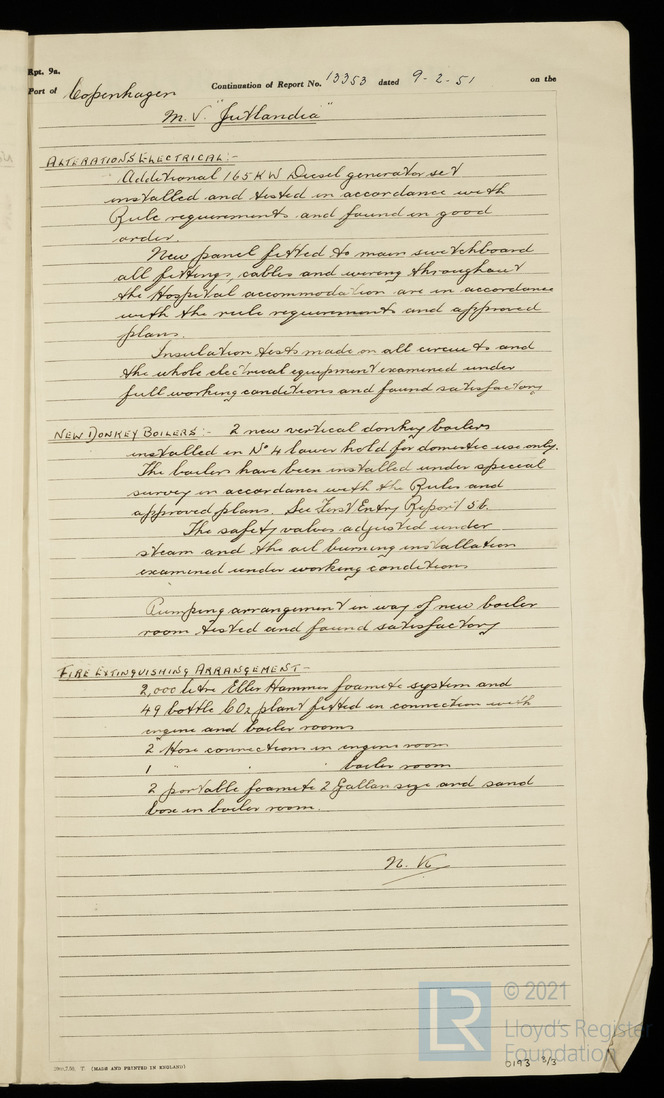 Rpt. 9a.
Port of Copenhagen Continuation of Report No. 13353 dated 9-2-51 on the
M.V. "Jutlandia"
ALTERATIONS ELECTRICAL:-
Additional 165 KW Diesel generator set
installed and tested in accordance with
Rule requirements and found in good
order.
New panel fitted to main switchboard
all fittings, cables and wiring throughout
the Hospital accommodation are in accordance
with the rule requirements and approved
plans.
Insulation tests made on all circuits and
the whole electrical equipment examined under
full working conditions and found satisfactory
NEW DONKEY BOILERS:- 2 new vertical donkey boilers
installed in No 4 lower hold for domestic use only.
The boilers have been installed under special
survey in accordance with the Rules and
approved plans. See First Entry Report 5b.
The safety valves adjusted under
steam and the oil burning installation
examined under working conditions
Pumping arrangement in way of new boiler
room tested and found satisfactory
FIRE EXTINGUISHING ARRANGEMENT-
2,000 litre Eller Hammer foamite system and
49 bottle CO2 plant fitted in connection with
engine and boiler rooms
2 Hose connections in engine room
1 " " " boiler room
2 portable foamite 2 Gallon size and sand
box in boiler room.
© 2021
Lloyd's Register
Foundation
0193 3/3
2m. 7.50. T. (MADE AND PRINTED IN ENGLAND)